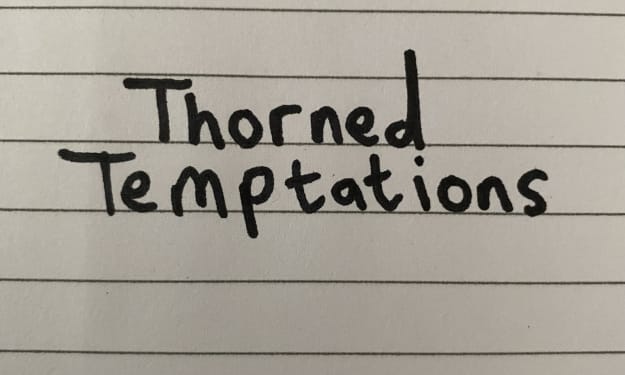 Thorned
Temptations